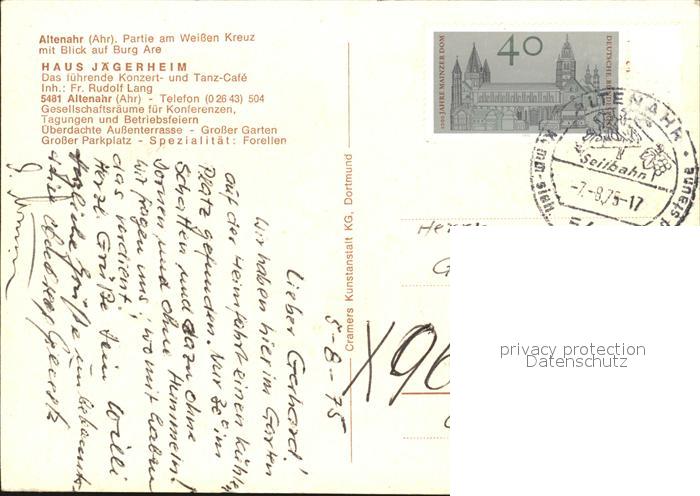 Altenahr (Ahr). Partie am Weißen Kreuz
mit Blick auf Burg Are
HAUS JÄGERHEIM
Das führende Konzert- und Tanz-Café
Inh.: Fr. Rudolf Lang
5481 Altenahr (Ahr) - Telefon (0 26 43) 504
Gesellschaftsräume für Konferenzen,
Tagungen und Betriebsfeiern
Überdachte Außenterrasse - Großer Garten
Großer Parkplatz - Spezialität: Forellen
Cramers Kunstanstalt KG, Dortmund
1000 JAHRE MAINZER DOM
40
DEUTSCHE BUNDESPOST
ALTENAHR
Seilbahn
-7.-8.75-17
und staune
5-8-75
Lieber Gerhard!
Wir haben hier im Garten
auf der Heimfahrt einen kühlen
Platz gefunden. Nur 30 im
Schatten und dazu ohne
Dornen und ohne Hummeln!
Wir fragen uns, womit haben
das verdient.
Herzl Grüße Dein Willi
Herzliche Grüße
X96
privacy protection
Datenschutz